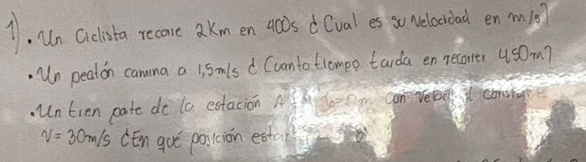 1). Un Ciclista recorre 2Km en 400s ¿Cual es su Velocidad en m/s?
• Un peatón camina a 1,5m/s ¿Cuanto tiempo tarda en recorrer 450m?
• Un tren pate de la estación A con Velocidad constante
V = 30m/s ¿En qué posición estar